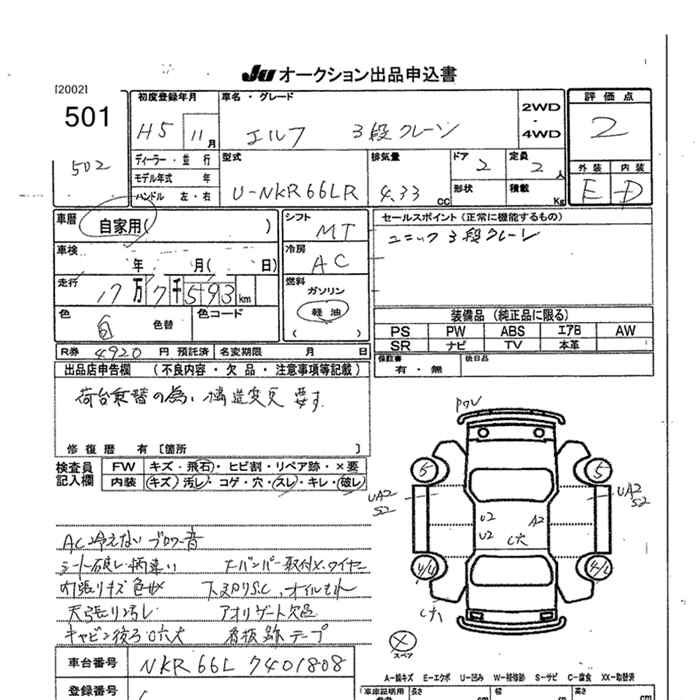 JU オークション出品申込書
[2002]
501
502
初度登録年月
H5 11月
車名・グレード
エルフ 3段クレーン
2WD
・
4WD
評価点
2
外装 内装
E D
ディーラー・並行
モデル年式 年
ハンドル 左・右
型式
U-NKR66LR
排気量
4.33 CC
ドア
2
形状
定員
2 人
積載
Kg
車歴
自家用( )
車検
年 月( 日)
走行
17万7千593km
色
白 色替
色コード
シフト
MT
冷房
AC
燃料
ガソリン
軽油
( )
セールスポイント(正常に機能するもの)
ユニック 3段クレーン
装備品(純正品に限る)
PS PW ABS エアB AW
SR ナビ TV 本革
保証書
有・無
後日品
R券 4920 円 預託済 名変期限 月 日
出品店申告欄 (不良内容・欠品・注意事項等記載)
荷台乗替の為い構造変更要す
修復歴 有〔箇所 〕
検査員
記入欄
FW キズ・飛石・ヒビ割・リペア跡・×要
内装 キズ 汚レ・コゲ・穴・スレ・キレ・破レ
AC冷えない ブロワー音
シート破レ柄違い
内張りキズ色せ
下スカリS.C,オイルもれ
天張り汚し
アオリゲート欠品
キャビン後ろ
看板跡 テープ
PWV
5 5
UA2
S2
UA2
S2
U2
U2
A2
C穴
スペア
車台番号 NKR66L 7401808
登録番号
A-線キズ E-エクボ U-凹み W-補修跡 S-サビ C-腐食 XX-取替済
車庫証明用
長さ
cm
幅
cm
高さ
cm